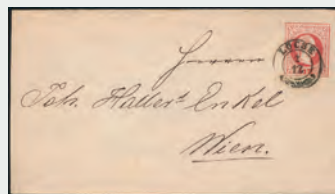 Herrn
Joh. Haller's Enkel
Wien.